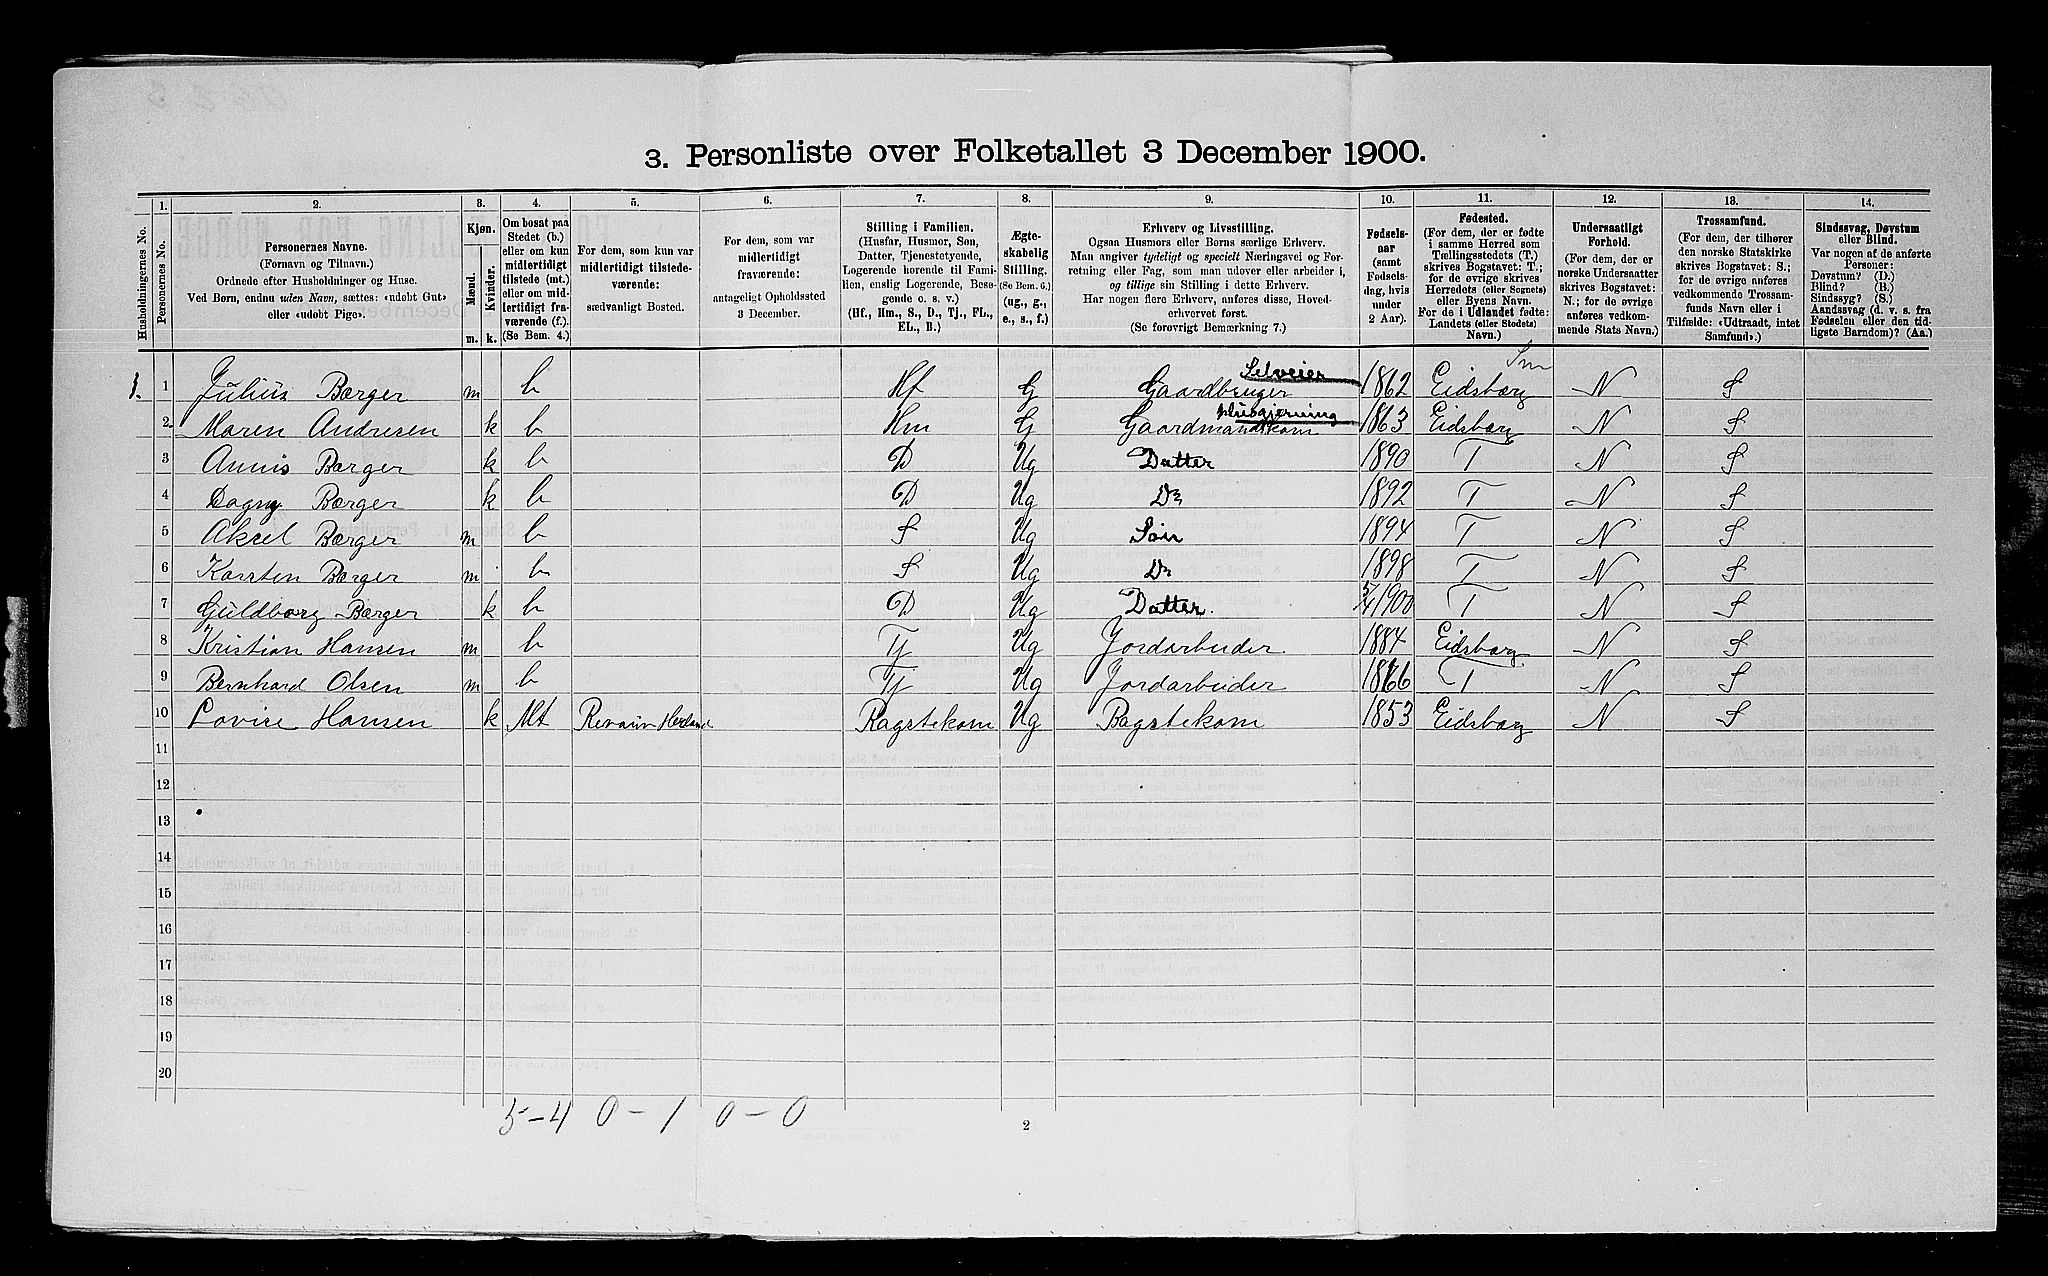 3. Personliste over Folketallet 3 December 1900.
Husholdningernes No.
1. Personernes No.
2. Personernes Navne.
(Fornavn og Tilnavn.)
Ordnede efter Husholdninger og Huse.
Ved Børn, endnu uden Navn, sættes: «udøbt Gut»
eller «udøbt Pige».
3. Kjøn.
Mænd. m.
Kvinder. k.
4. Om bosat paa
Stedet (b.)
eller om kun
midlertidigt
tilstede (mt.)
eller om mid-
lertidigt fra-
værende (f.).
(Se Bem. 4.)
5. For dem, som kun var
midlertidigt tilstede-
værende:
sædvanligt Bosted.
6. For dem, som var
midlertidigt
fraværende:
antageligt Opholdssted
3 December.
7. Stilling i Familien.
(Husfar, Husmor, Søn,
Datter, Tjenestetyende,
Logerende hørende til Fami-
lien, enslig Logerende, Besø-
gende o. s. v.)
(Hf., Hm., S., D., Tj., FL.,
EL., B.)
8. Ægte-
skabelig
Stilling.
(Se Bem. 6.)
(ug., g.,
e., s., f.)
9. Erhverv og Livsstilling.
Ogsaa Husmors eller Børns særlige Erhverv.
Man angiver tydeligt og specielt Næringsvei og For-
retning eller Fag, som man udøver eller arbeider i,
og tillige sin Stilling i dette Erhverv.
Har nogen flere Erhverv, anføres disse, Hoved-
erhvervet først.
(Se forøvrigt Bemærkning 7.)
10. Fødsels-
aar
(samt
Fødsels-
dag, hvis
under
2 Aar).
11. Fødested.
(For dem, der er fødte
i samme Herred som
Tællingsstedets (T.)
skrives Bogstavet: T.;
for de øvrige skrives
Herredets (eller Sognets)
eller Byens Navn.
For de i Udlandet fødte:
Landets (eller Stedets)
Navn.)
12. Undersaatligt
Forhold.
(For dem, der er
norske Undersaatter
skrives Bogstavet:
N.; for de øvrige
anføres vedkom-
mende Stats Navn.)
13. Trossamfund.
(For dem, der tilhører
den norske Statskirke
skrives Bogstavet: S.;
for de øvrige anføres
vedkommende Trossam-
funds Navn eller i
Tilfælde: «Udtraadt, intet
Samfund».)
14. Sindssvag, Døvstum
eller Blind.
Var nogen af de anførte
Personer:
Døvstum? (D.)
Blind? (B.)
Sindssyg? (S.)
Aandssvag (d. v. s. fra
Fødselen eller den tid-
ligste Barndom)? (Aa.)
1. 1 Julius Børger m b Hf G Gaardbruger Selveier 1862 Eidsberg Sm N S
2 Maren Andresen k b Hm G Gaardmandskom Husgjerning 1863 Eidsberg N S
3 Annis Børger k b D Ug Datter 1890 T N S
4 Dagny Børger k b D Ug Do 1892 T N S
5 Aksel Børger m b S Ug Søn 1894 T N S
6 Karsten Børger m b S Ug Do 1898 T N S
7 Guldborg Børger k b D Ug Datter. 5/4 1900 T N S
8 Kristian Hansen m b Tj Ug Jordarbeider 1884 Eidsberg N S
9 Bernhard Olsen m b Tj Ug Jordarbeider 1866 T N S
10 Lovise Hansen k Mt Ragstekom Ug Bagstekom 1853 Eidsberg N S
11
12
13
14
15
16
17
18
19
20
5-4 0-1 0-0
2